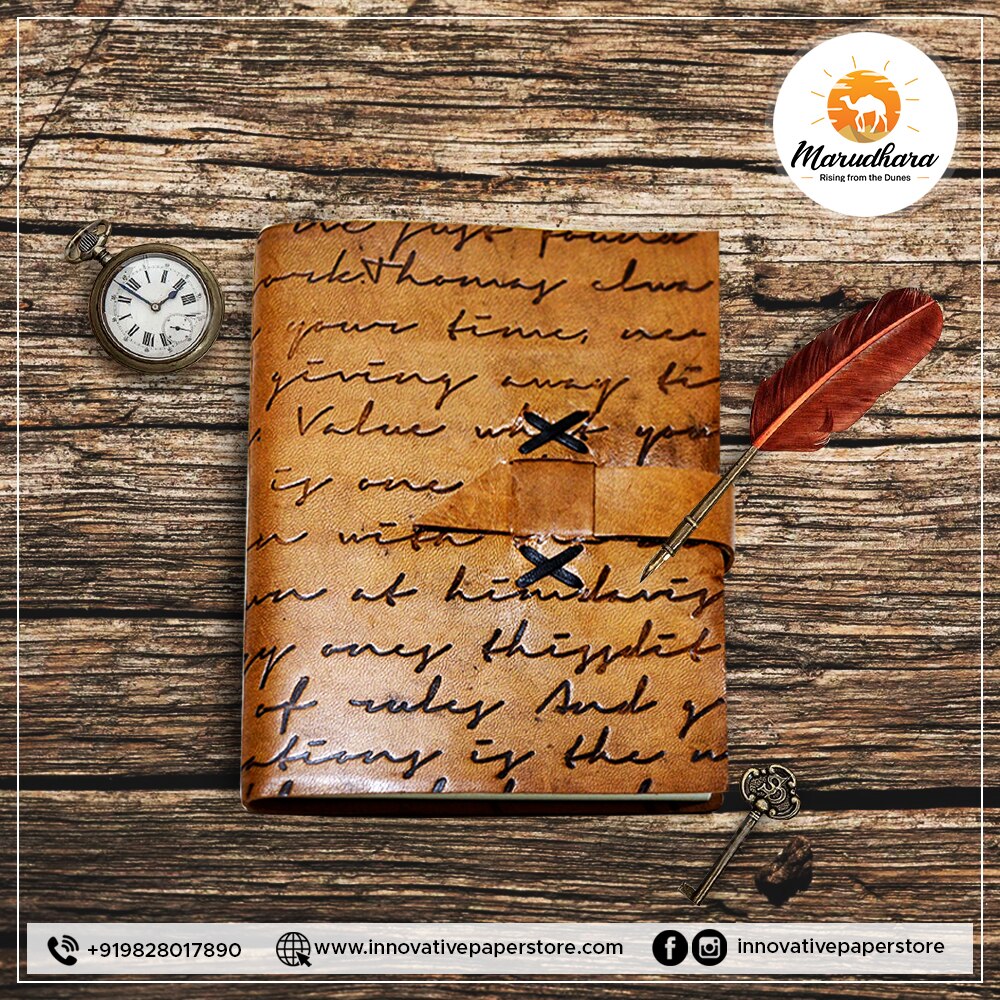 Marudhara
Rising from the Dunes
ove just found
ork.Thomas
your time,
giving away
Value what you
is one
with
at him
ones
of rules And
ations is the
+919828017890
www.innovativepaperstore.com
innovativepaperstore